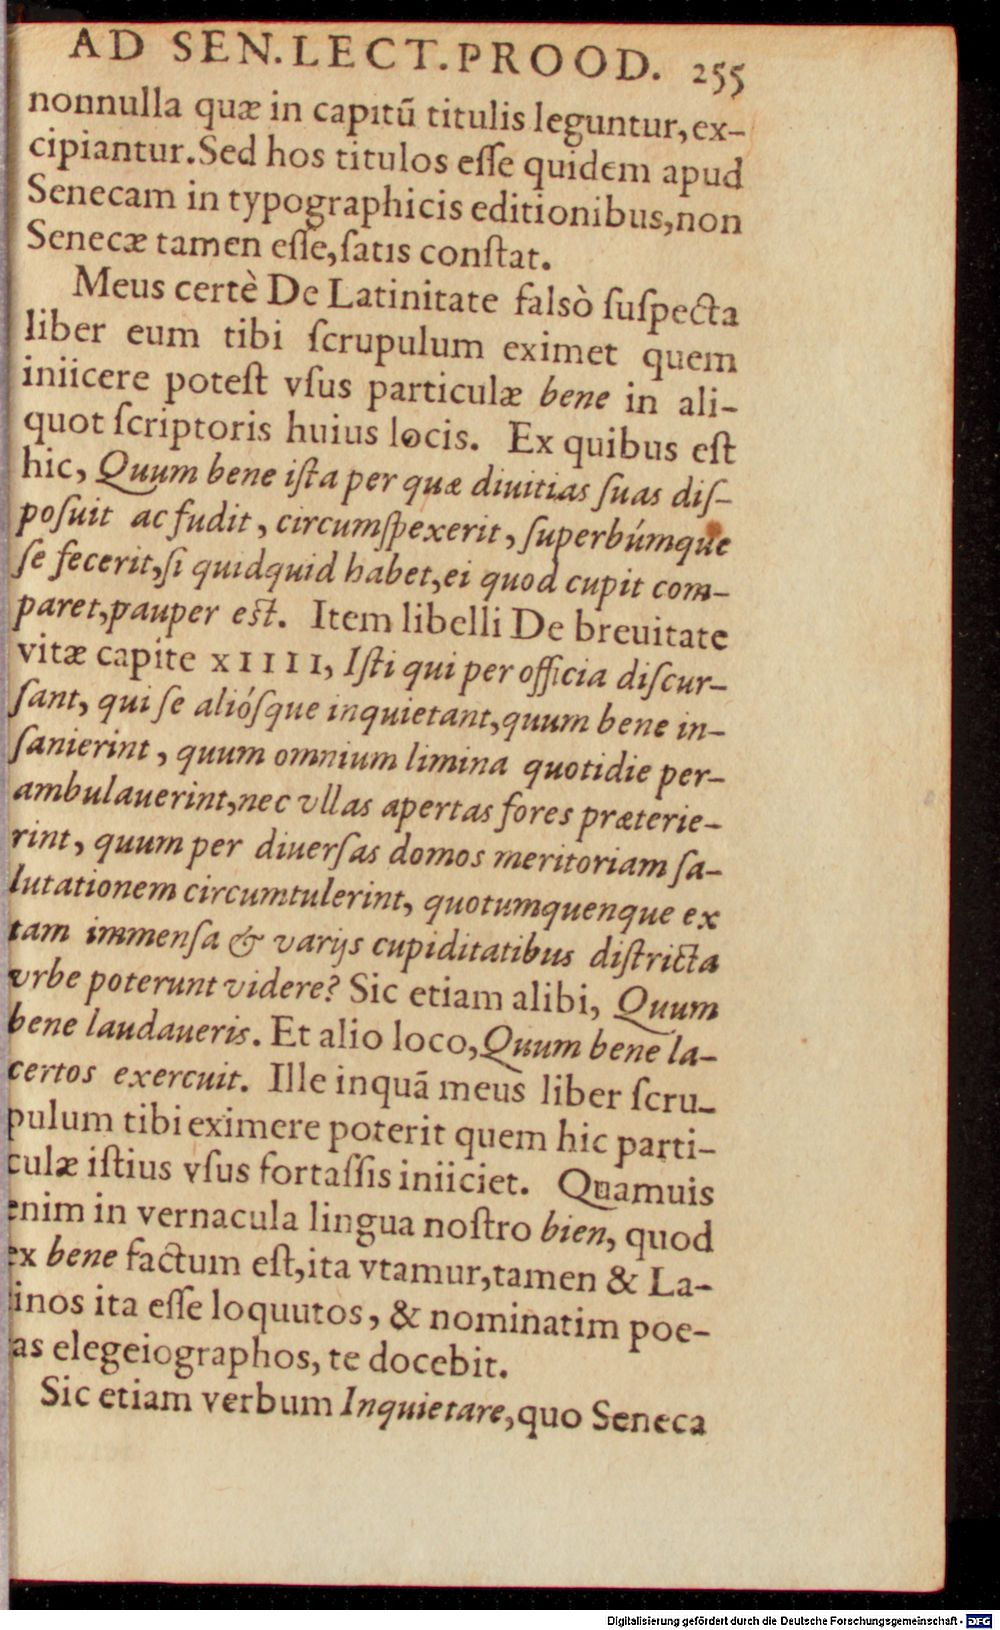 AD SEN.LECT.PROOD. 255
nonnulla quæ in capitũ titulis leguntur,ex-
cipiantur.Sed hos titulos eſſe quidem apud
Senecam in typographicis editionibus,non
Senecæ tamen eſſe,ſatis conſtat.
Meus certè De Latinitate falsò ſuſpecta
liber eum tibi ſcrupulum eximet quem
iniicere poteſt vſus particulæ bene in ali-
quot ſcriptoris huius locis. Ex quibus eſt
hic, Quum bene iſta per quæ diuitias ſuas diſ-
poſuit ac fudit, circumſpexerit, ſuperbúmque
ſe fecerit,ſi quidquid habet,ei quod cupit com-
paret,pauper eſt. Item libelli De breuitate
vitæ capite XIIII, Iſti qui per officia diſcur-
ſant, qui ſe alióſque inquietant,quum bene in-
ſanierint, quum omnium limina quotidie per-
ambulauerint,nec vllas apertas fores præterie-
rint, quum per diuerſas domos meritoriam ſa-
lutationem circumtulerint, quotumquenque ex
tam immenſa & varijs cupiditatibus diſtricta
vrbe poterunt videre? Sic etiam alibi, Quum
bene laudaueris. Et alio loco,Quum bene la-
certos exercuit. Ille inquã meus liber ſcru-
pulum tibi eximere poterit quem hic parti-
culæ iſtius vſus fortaſſis iniiciet. Quamuis
enim in vernacula lingua noſtro bien, quod
ex bene factum eſt,ita vtamur,tamen & La-
tinos ita eſſe loquutos, & nominatim poe-
tas elegeiographos, te docebit.
Sic etiam verbum Inquietare,quo Seneca
Digitalisierung gefördert durch die Deutsche Forschungsgemeinschaft - DFG